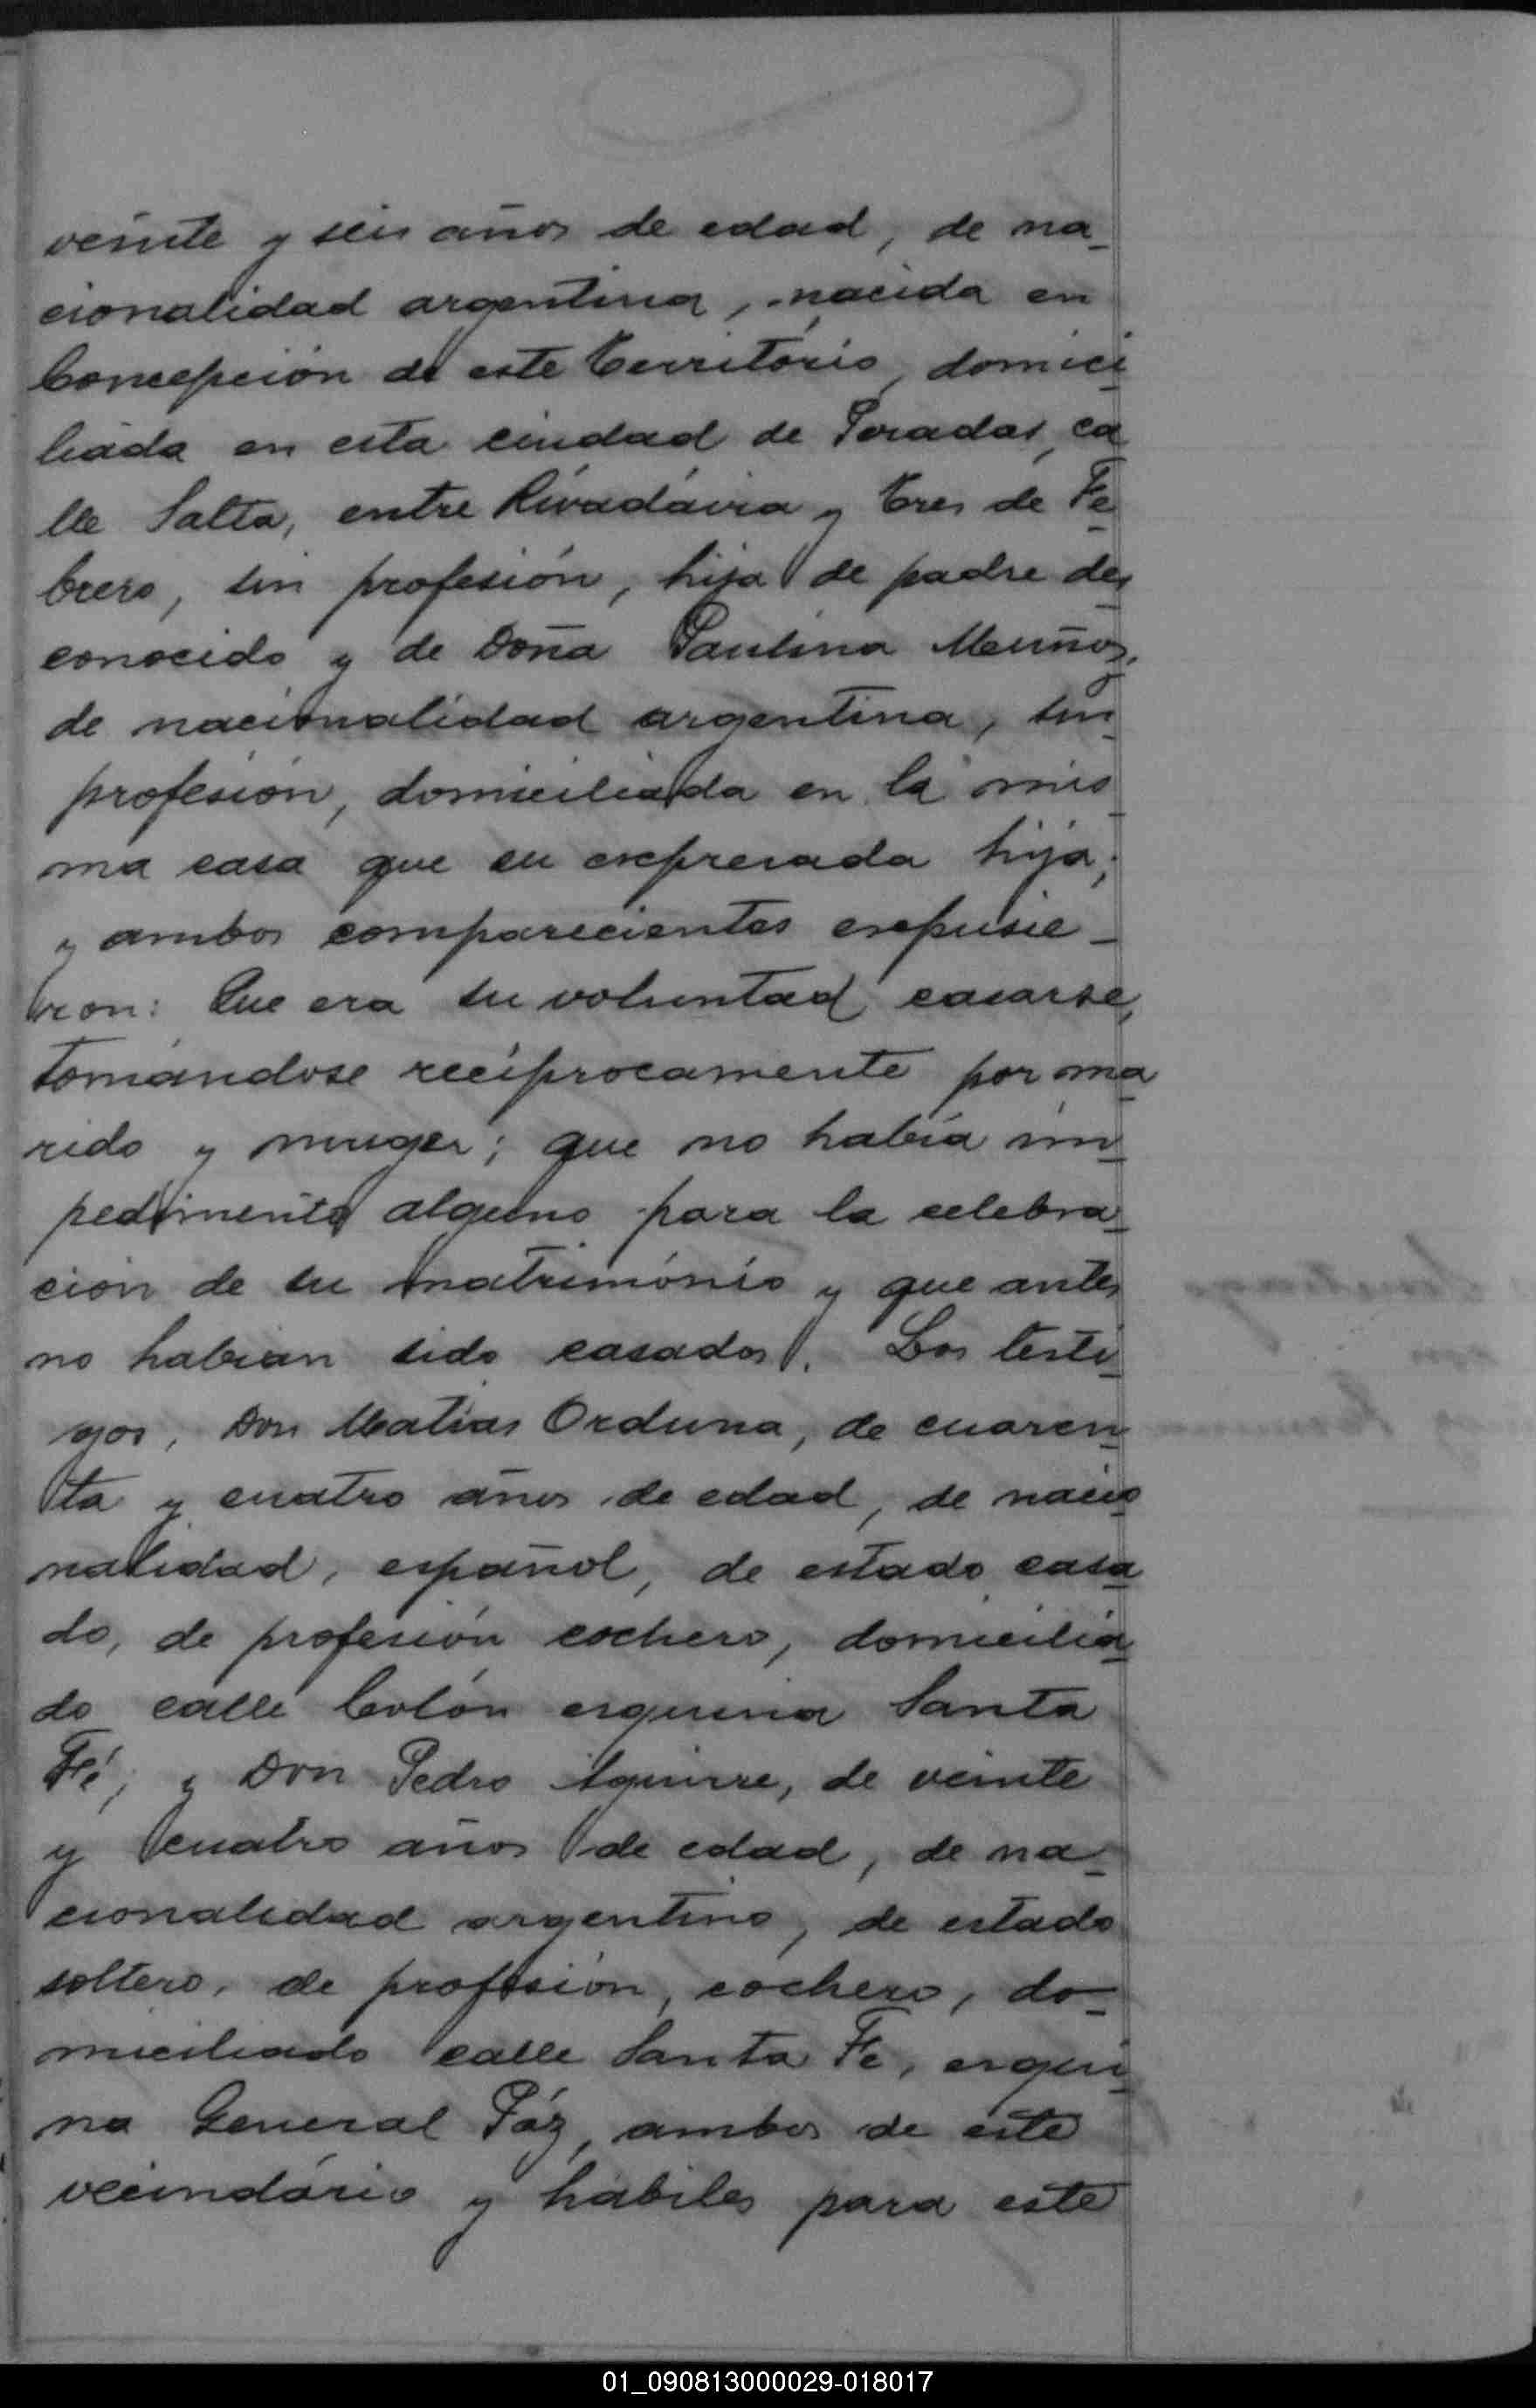 veinte y seis años de edad, de na-
cionalidad argentina, nacida en
Concepción de este Território, domici-
liada en esta ciudad de Posadas, ca-
lle Salta, entre Rivadávia y Tres de Fe-
brero, sin profesión, hija de padre des-
conocido y de Doña Paulina Muñoz,
de nacionalidad argentina, sin
profesión, domiciliada en la mis-
ma casa que su expresada hija;
y ambos comparecientes expusie-
ron: Que era su voluntad casarse,
tomándose recíprocamente por ma-
rido y muger; que no había im-
pedimento alguno para la celebra-
ción de su matrimónio y que antes
no habian sido casados. Los testi-
gos, Don Matías Orduna, de cuaren-
ta y cuatro años de edad, de nacio-
nalidad, español, de estado casa-
do, de profesión cochero, domicilia-
do calle Colón esquina Santa
Fé, y Don Pedro Aguirre, de veinte
y cuatro años de edad, de na-
cionalidad argentino, de estado
soltero, de profesión, cochero, do-
miciliado calle Santa Fe, esqui-
na General Páz, ambos de este
vecindário y hábiles para este
01_090813000029-018017